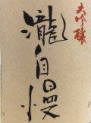 大吟醸
瀧自慢